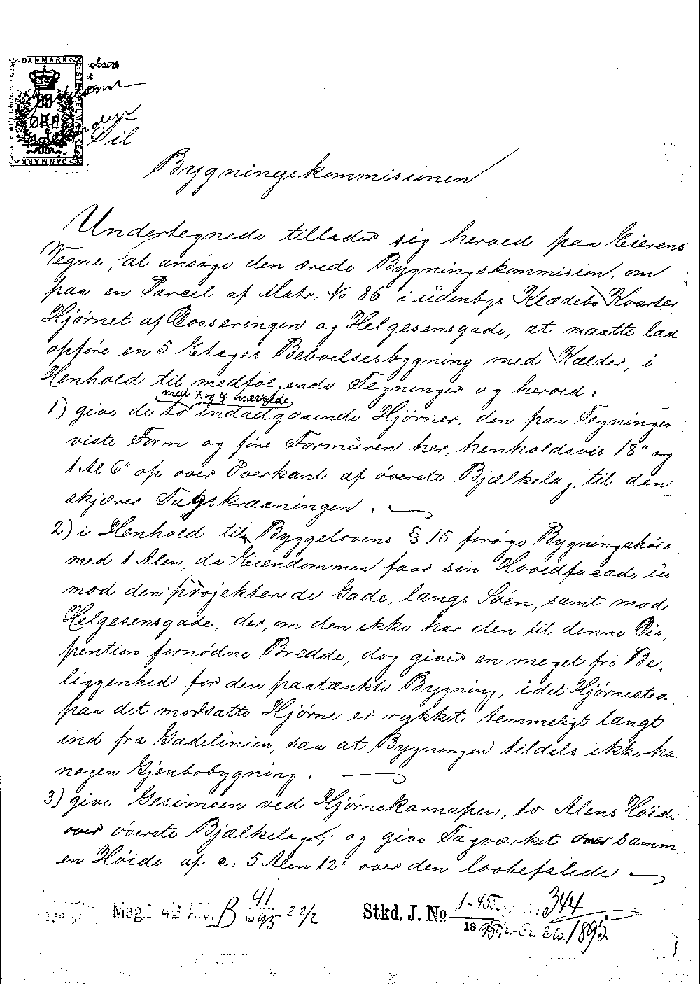 DANMARK
Til
Bygningskommisionen
Undertegnede tillader sig herved paa Eierens
Vegne, at ansøge den ærede Bygningskommision, om
paa en Parcel af Matr. No 86 i udenbys Klædebo Kvarter
Hjørnet af Dosseringen og Helgesensgade, at maatte lade
opføre en 5 Etages Beboelsesbygning med Kælder, i
Henhold til medfølgende Tegninger og herved:
1) give de to indadgaaende Hjørner, den paa Tegningen
viste Form og føre Formuren her, henholdsvis 18" og
1 Al. 6" op over Overkant af øverste Bjælkelag til den
skjærer Tagskraaningen.
2) i Henhold til Byggelovens § 15 forøge Bygningshøiden
med 1 Alen, da Eiendommen faar sin Hovedfacade ud
mod den projekterede Gade, langs Søen, samt mod
Helgesensgade, der, om den ikke har den til denne Dis-
pention fornødne Bredde, dog giver en meget fri Be-
liggenhed for den paatænkte Bygning, idet Hjørnesten
paa det modsatte Hjørne er rykket temmeligt langt
ind fra Gadelinien, saa at Bygningen tildels ikke har
nogen Gjenbobygning.
3) give Gesimsen ved Hjørnekarnapen, to Alens Høide
over øverste Bjælkelag, og give Tagværket over samme
en Høide af c. 5 Alen 12" over den lovbefalede
Mag. B 41 1895 22/2
Stkd. J. No 1-45 344
1895